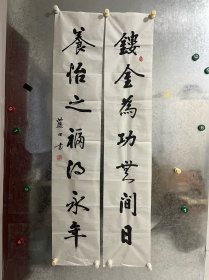 鏤金為功無間日
養怡之福得永年